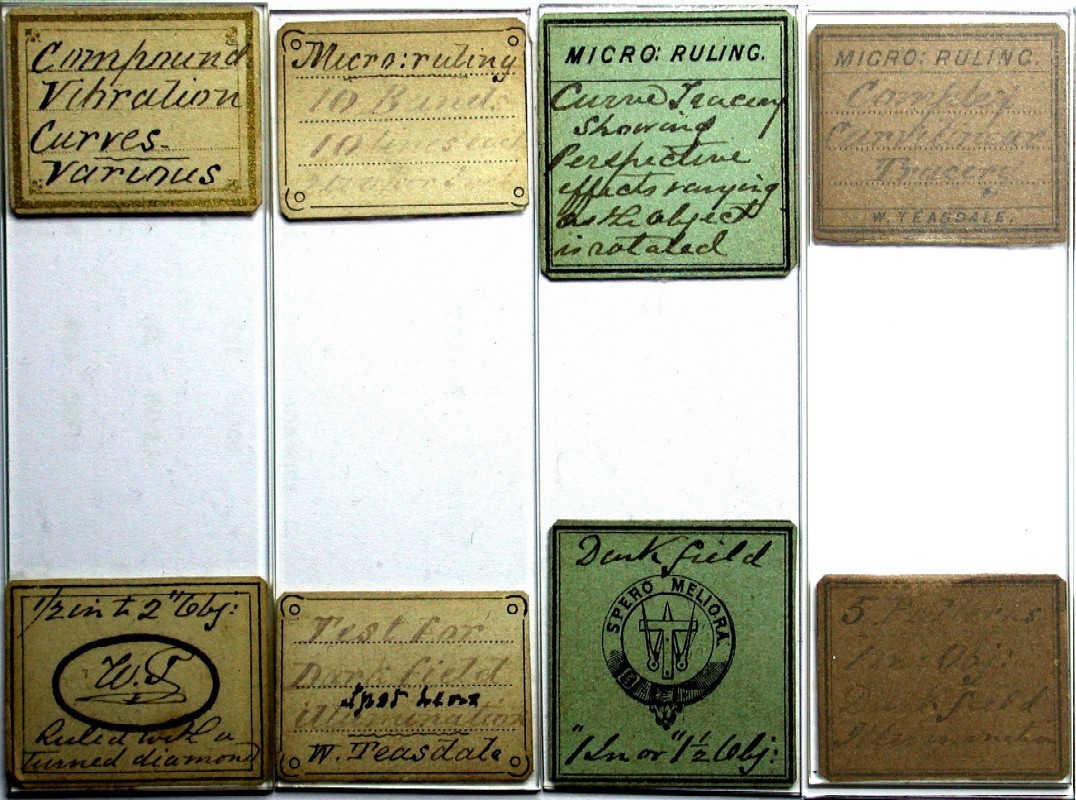 Compound
Vibration
Curves-
Various
1/2 in to 2" Obj:
W.T
Ruled with a
turned diamond
Micro: ruling
10 Bands
10
Test for
Dark field
Spot Lens
illumination
W. Teasdale
MICRO: RULING.
Curve Tracery
Showing
Perspective
effects varying
as the object
is rotated
Dark field
SPERO MELIORA
"1 In or "1 1/2 Obj:
MICRO: RULING.
Complex
Curvilinear
Tracery
W. TEASDALE.
5
1 in Obj:
Dark field
Illumination